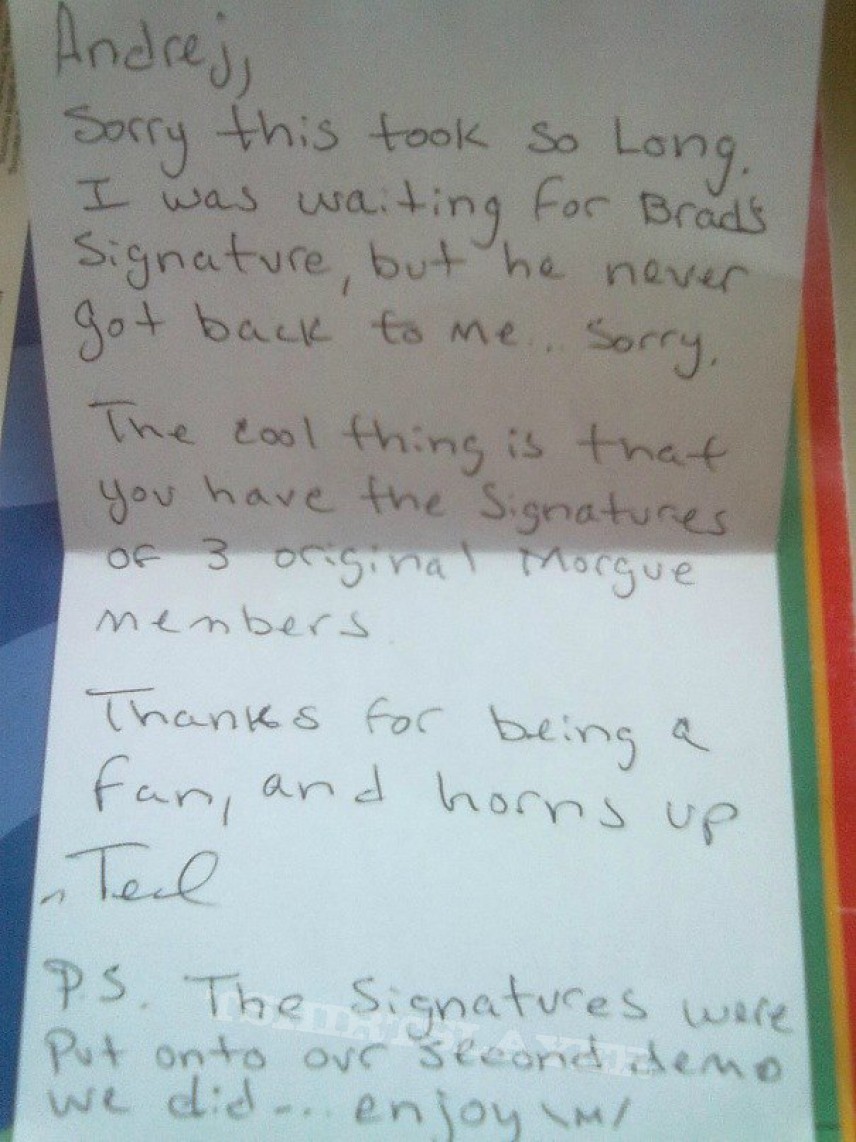 Andrej,
Sorry this took so Long.
I was waiting for Brad's
Signature, but he never
got back to me... Sorry.
The cool thing is that
you have the Signatures
of 3 original Morgue
members.
Thanks for being a
fan, and horns up
~Ted
P.S. The Signatures were
Put onto our second demo
we did --.. enjoy \m/
TSHIRTSLAYER